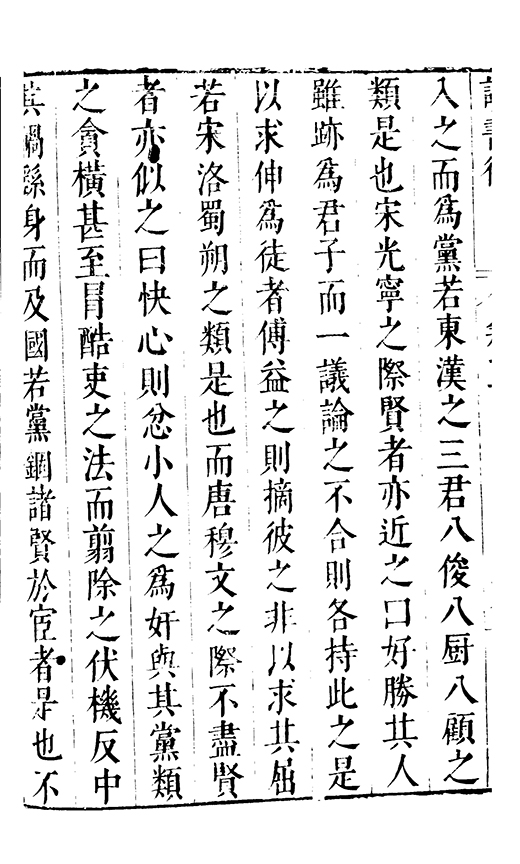 入之而爲黨若東漢之三君八俊八厨八顧之
類是也宋光寧之際賢者亦近之曰好勝其人
雖跡爲君子而一議論之不合則各持此之是
以求伸爲徒者傅益之則摘彼之非以求其屈
若宋洛蜀朔之類是也而唐穆文之際不盡賢
者亦似之曰快心則忿小人之爲奸與其黨類
之貪橫甚至冒酷吏之法而翦除之伏機反中
其禍繇身而及國若黨錮諸賢於宦者是也不